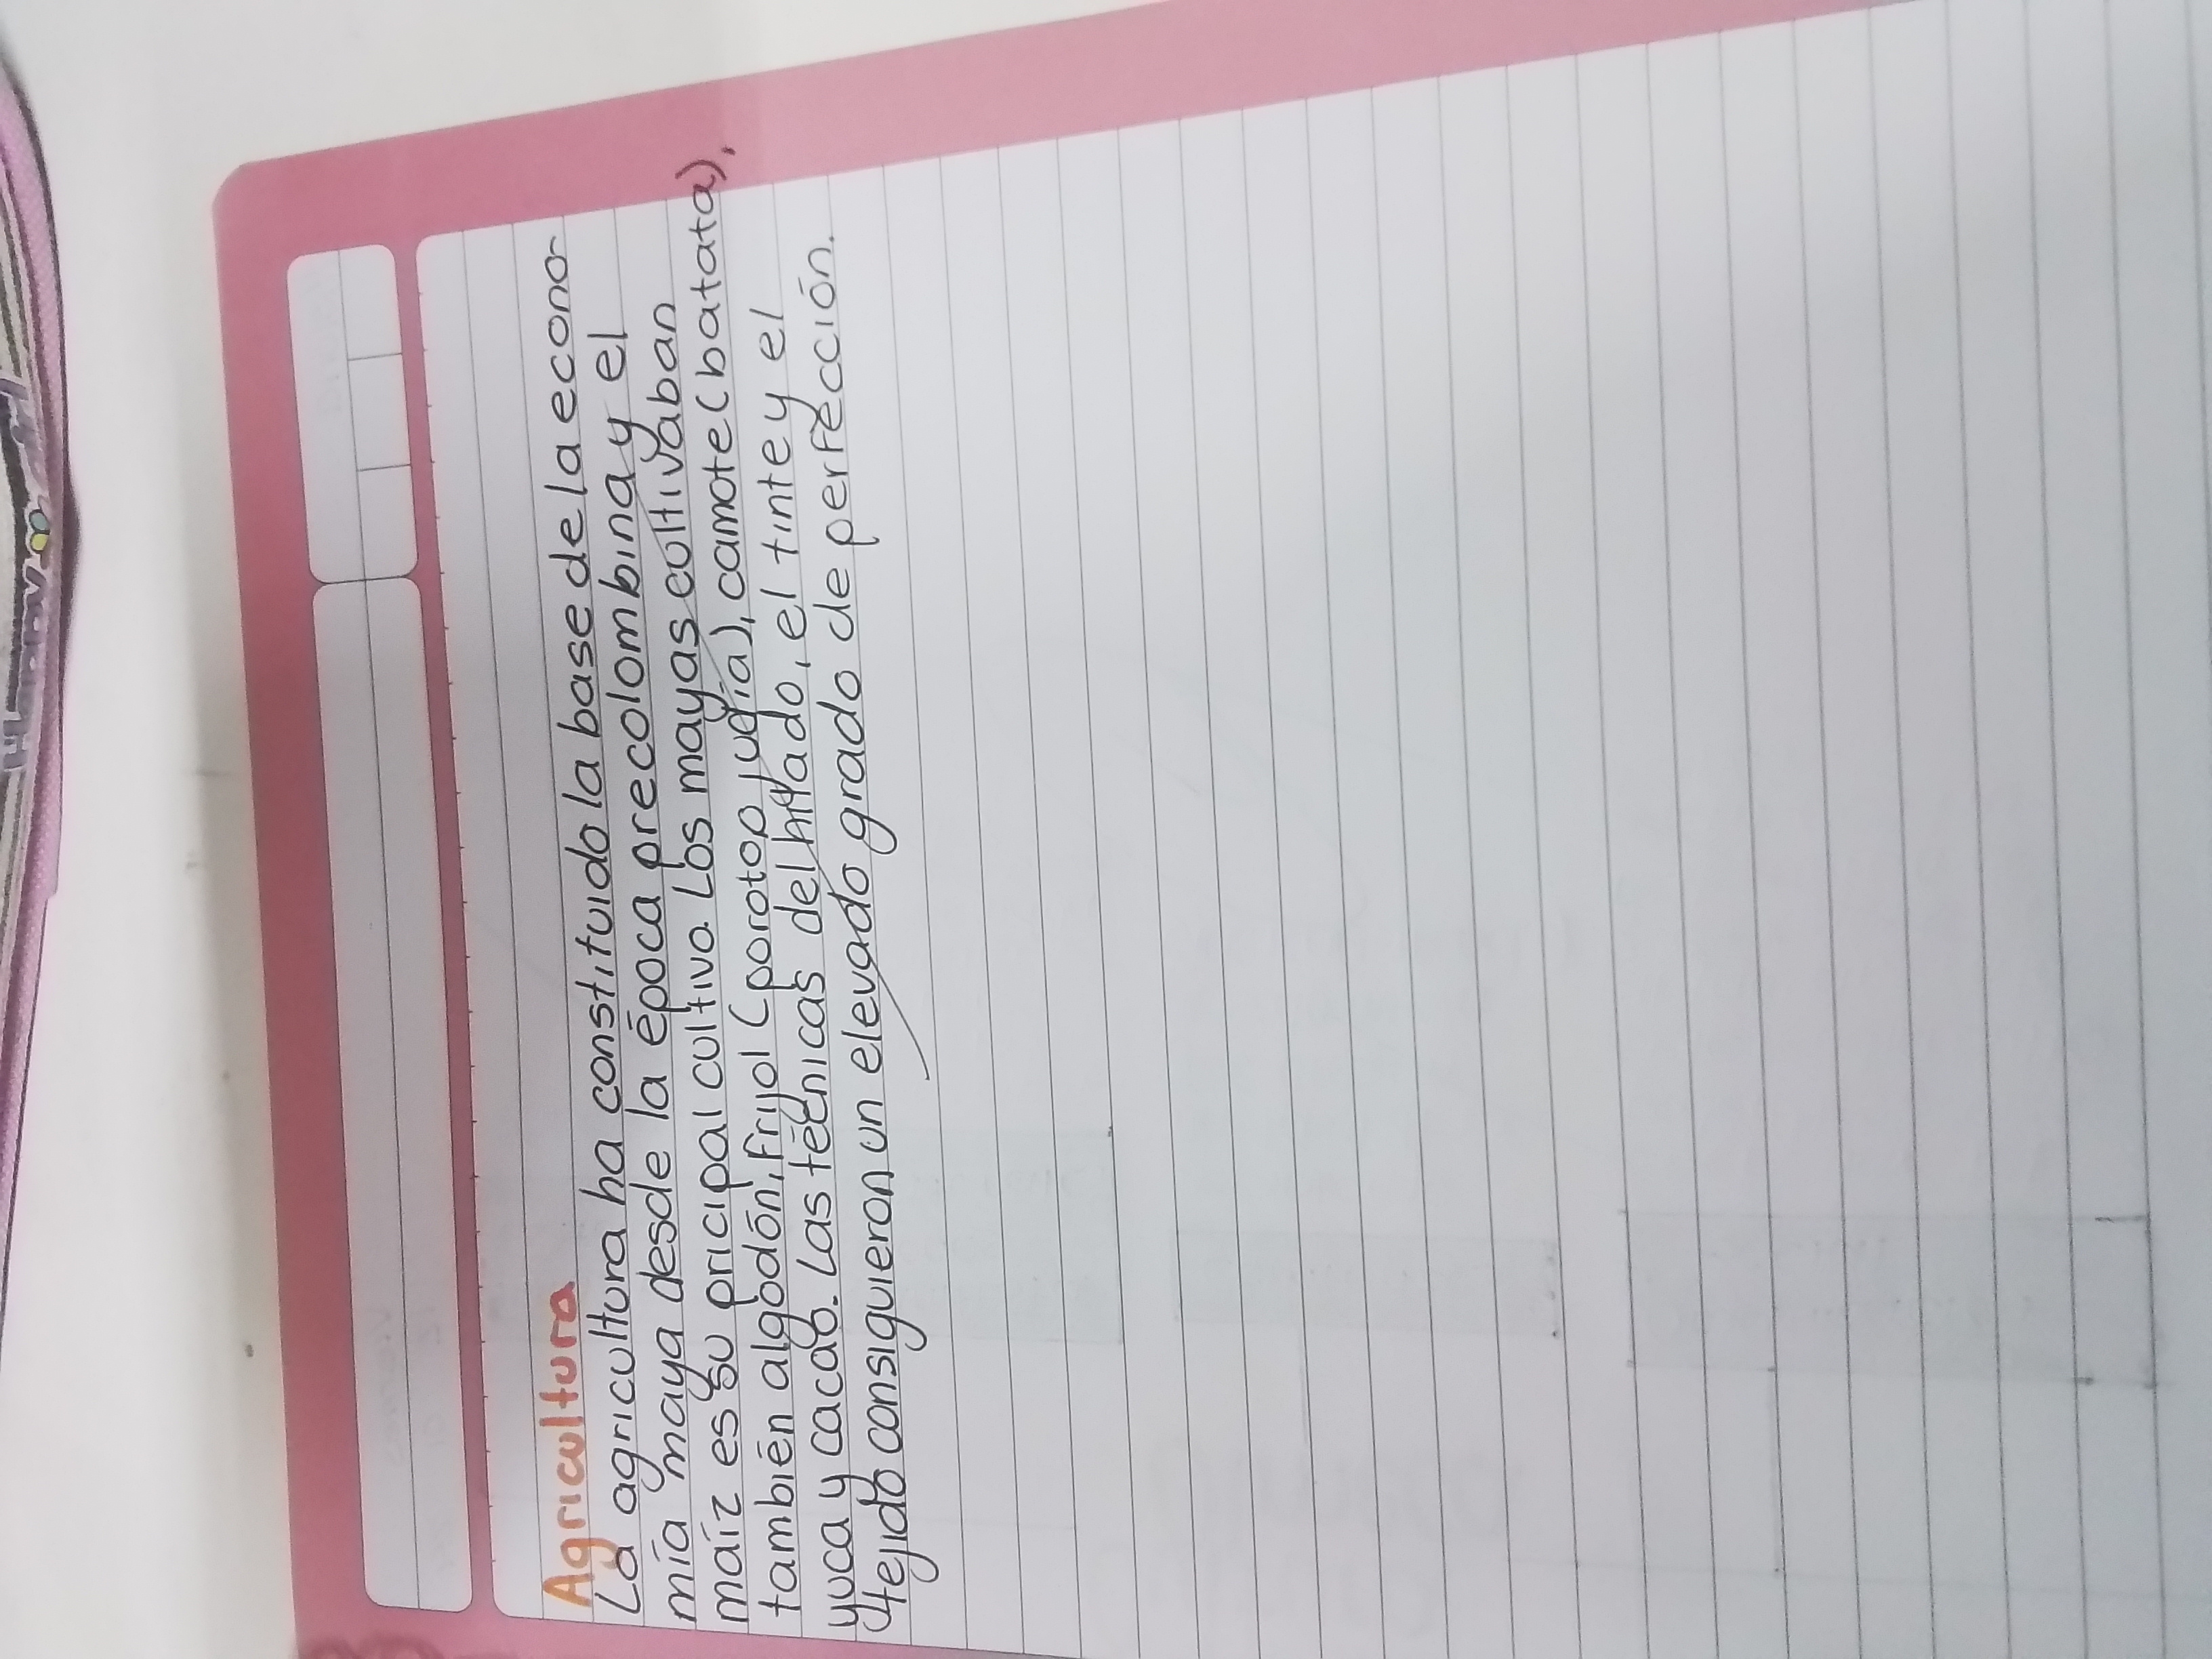 Agricultura
La agricultura ha constituido la base de la econo-
mía maya desde la época precolombina y el
maíz es su pricipal cultivo. Los mayas cultivaban
también algodón, frijol (poroto, judía), camote (batata),
yuca y cacao. Las técnicas del hilado, el tinte y el
tejido consiguieron un elevado grado de perfección.